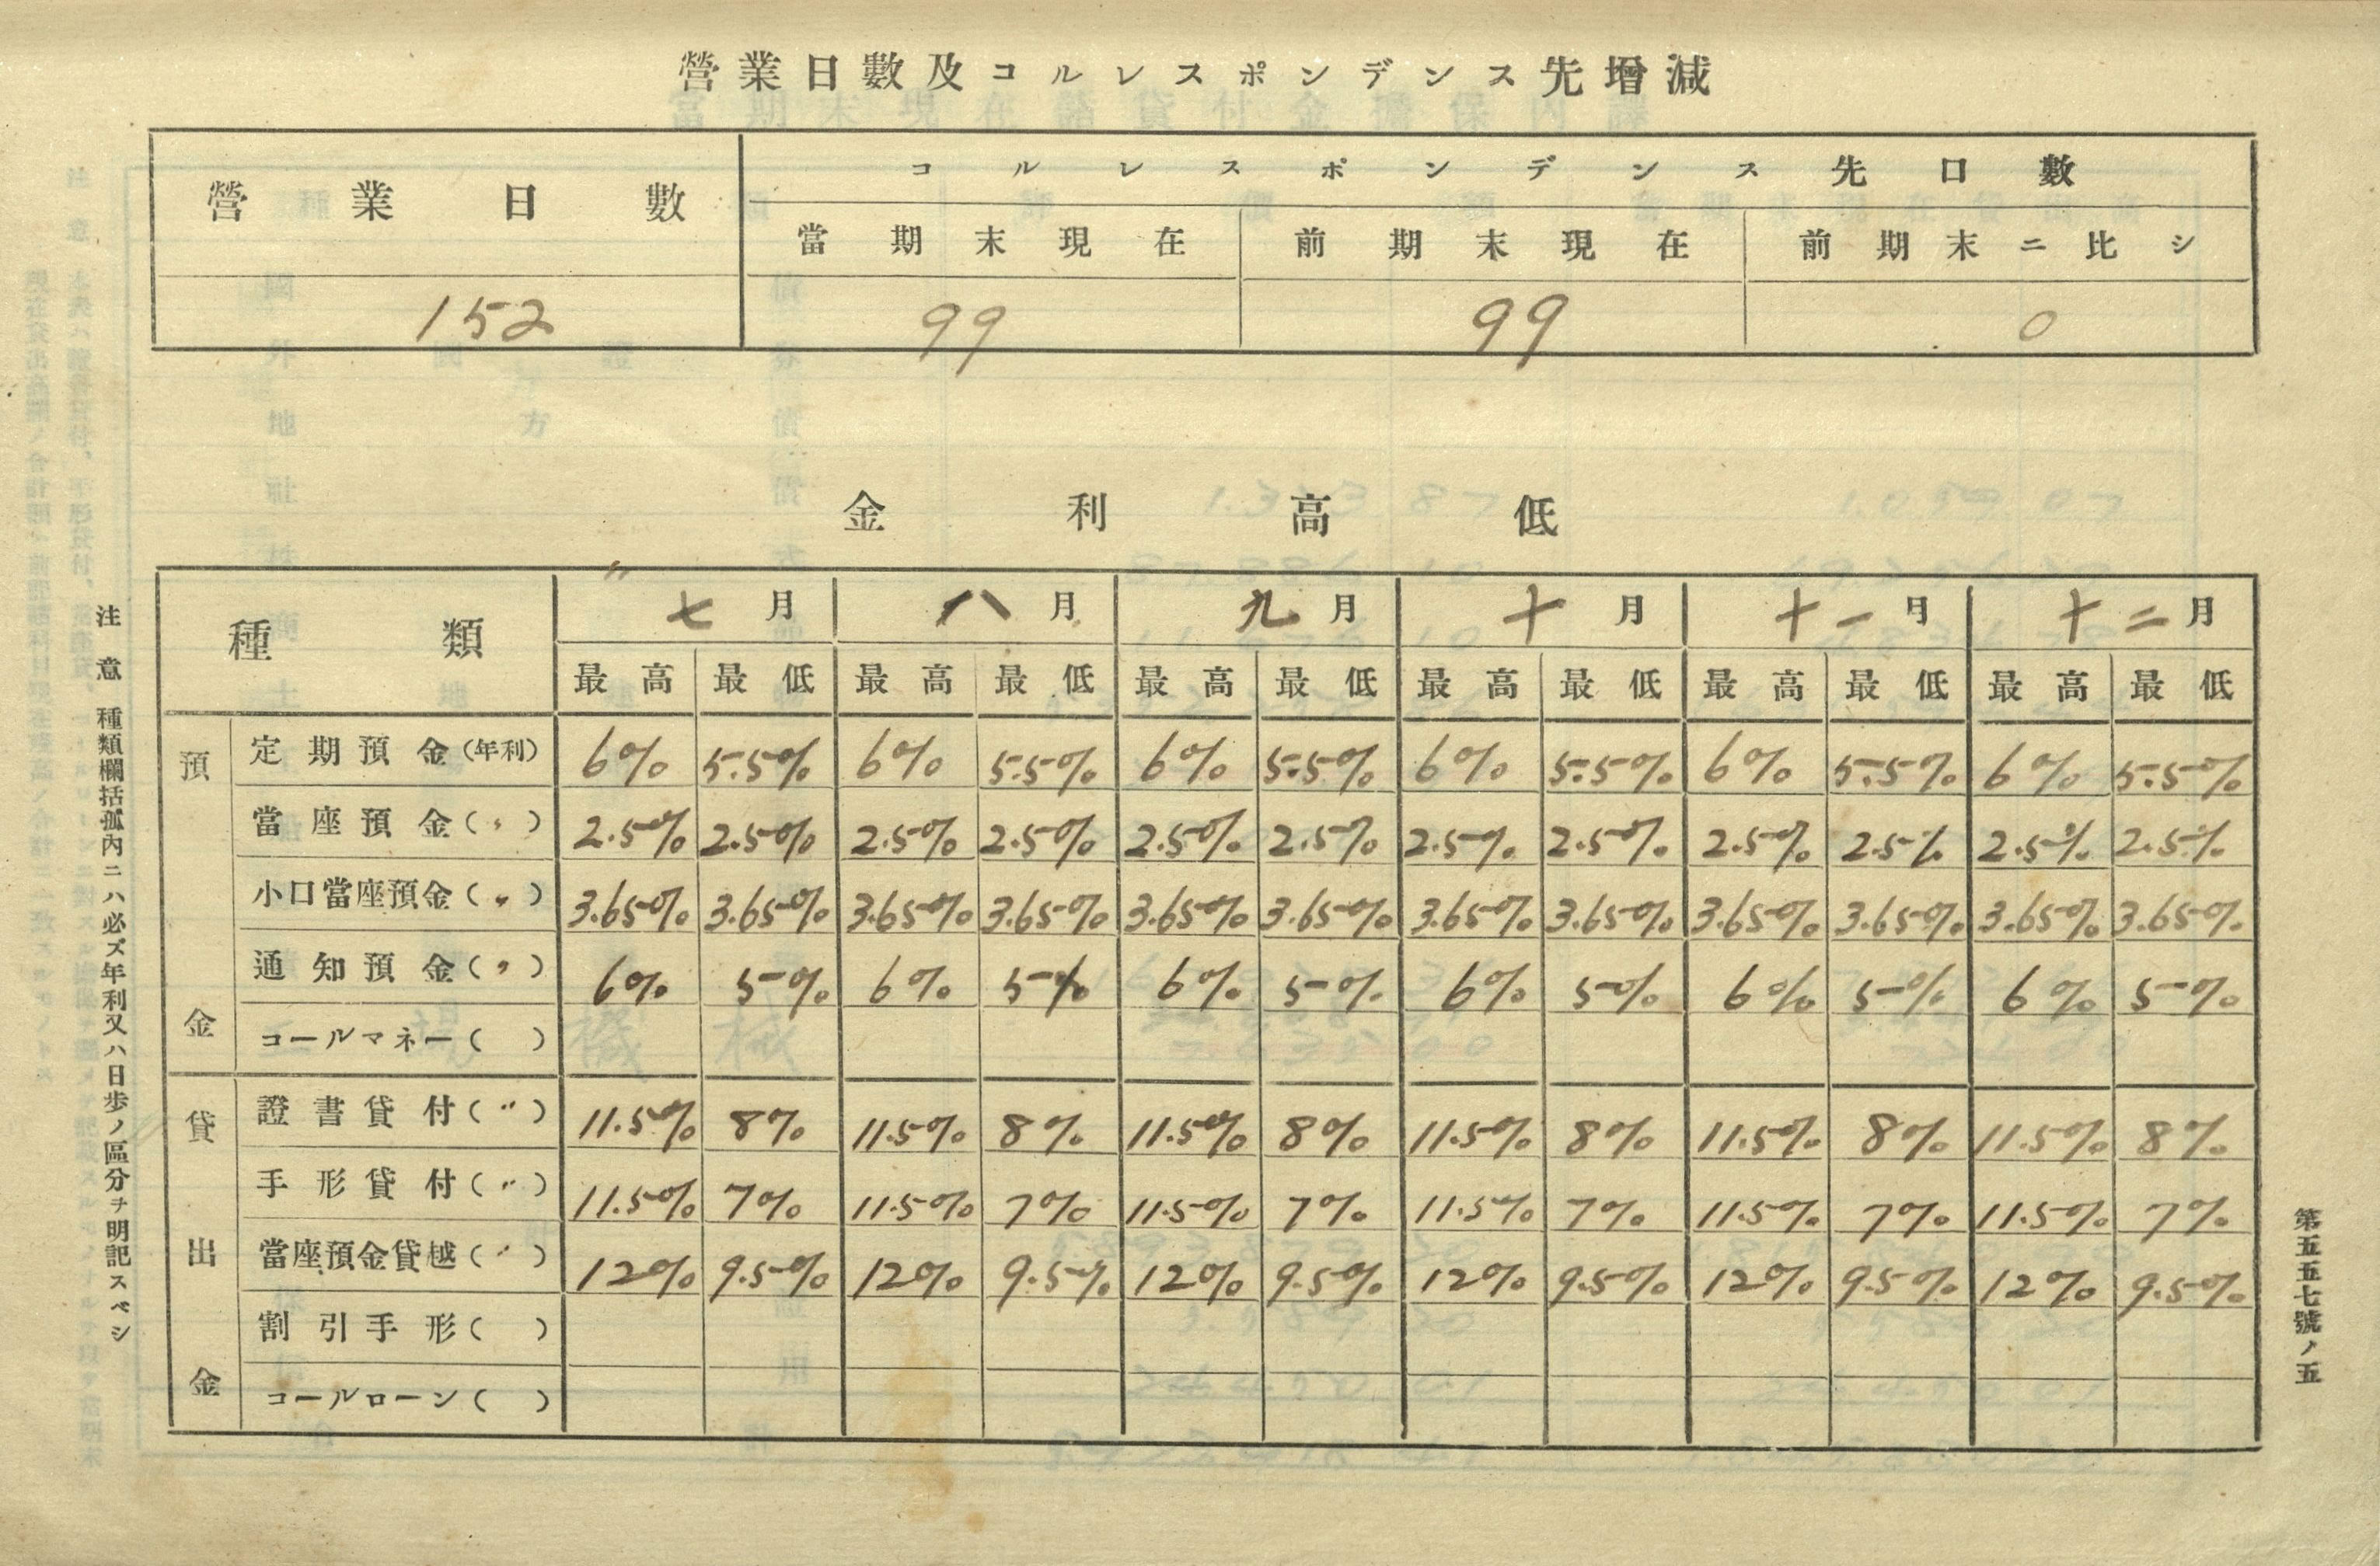 營業日數及コルレスポンデンス先増減
營業日數 コルレスポンデンス先口數
當期末現在 前期末現在 前期末ニ比シ
152 99 99 0
金利高低
種類 七月 八月 九月 十月 十一月 十二月
最高 最低 最高 最低 最高 最低 最高 最低 最高 最低 最高 最低
預金
定期預金(年利) 6% 5.5% 6% 5.5% 6% 5.5% 6% 5.5% 6% 5.5% 6% 5.5%
當座預金(〃) 2.5% 2.5% 2.5% 2.5% 2.5% 2.5% 2.5% 2.5% 2.5% 2.5% 2.5% 2.5%
小口當座預金(〃) 3.65% 3.65% 3.65% 3.65% 3.65% 3.65% 3.65% 3.65% 3.65% 3.65% 3.65% 3.65%
通知預金(〃) 6% 5% 6% 5% 6% 5% 6% 5% 6% 5% 6% 5%
コールマネー( )
貸出金
證書貸付(〃) 11.5% 8% 11.5% 8% 11.5% 8% 11.5% 8% 11.5% 8% 11.5% 8%
手形貸付(〃) 11.5% 7% 11.5% 7% 11.5% 7% 11.5% 7% 11.5% 7% 11.5% 7%
當座預金貸越(〃) 12% 9.5% 12% 9.5% 12% 9.5% 12% 9.5% 12% 9.5% 12% 9.5%
割引手形( )
コールローン( )
注意 種類欄括孤內ニハ必ズ年利又ハ日歩ノ區分ヲ明記スベシ
第五五七號ノ五